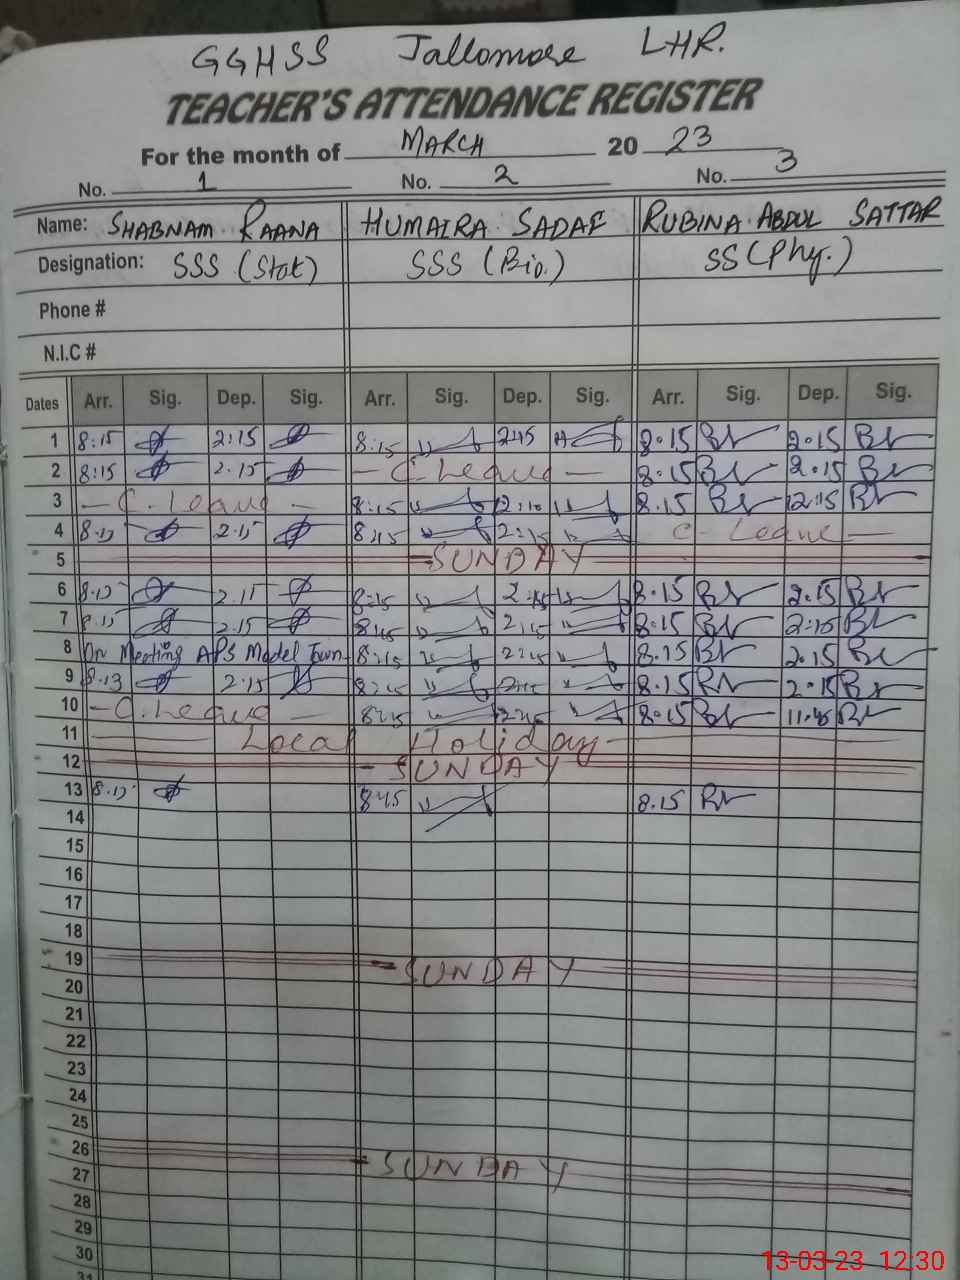 GGHSS Jallomore LHR.
TEACHER'S ATTENDANCE REGISTER
For the month of MARCH 20 23
No. 1 No. 2 No. 3
Name: SHABNAM RAANA HUMAIRA SADAF RUBINA ABDUL SATTAR
Designation: SSS (Stat) SSS (Bio.) SS (Phy.)
Phone #
N.I.C #
Dates Arr. Sig. Dep. Sig. Arr. Sig. Dep. Sig. Arr. Sig. Dep. Sig.
1 8:15 2:15 8:15 2:15 8.15 2.15
2 8:15 2.15 - C. Leave - 8.15 2.15
3 - C. Leave - 8:15 8.15 12:15
4 8.15 2.15 8:15 2:15 C. Leave
5 SUNDAY
6 8.15 2.15 8:15 2:15 8.15 2.15
7 8.15 2.15 8:15 2:15 8.15 2.15
8 On Meeting APS Model Town 8:15 2:15 8.15 2.15
9 8.13 2.15 8:15 2:15 8.15 2.15
10 - C. Leave - 8:15 2:15 8.15 11.45
11 Local Holiday
12 - SUNDAY
13 8.15 8:15 8.15
14
15
16
17
18
19 SUNDAY
20
21
22
23
24
25
26 SUNDAY
27
28
29
30
31
13-03-23 12:30